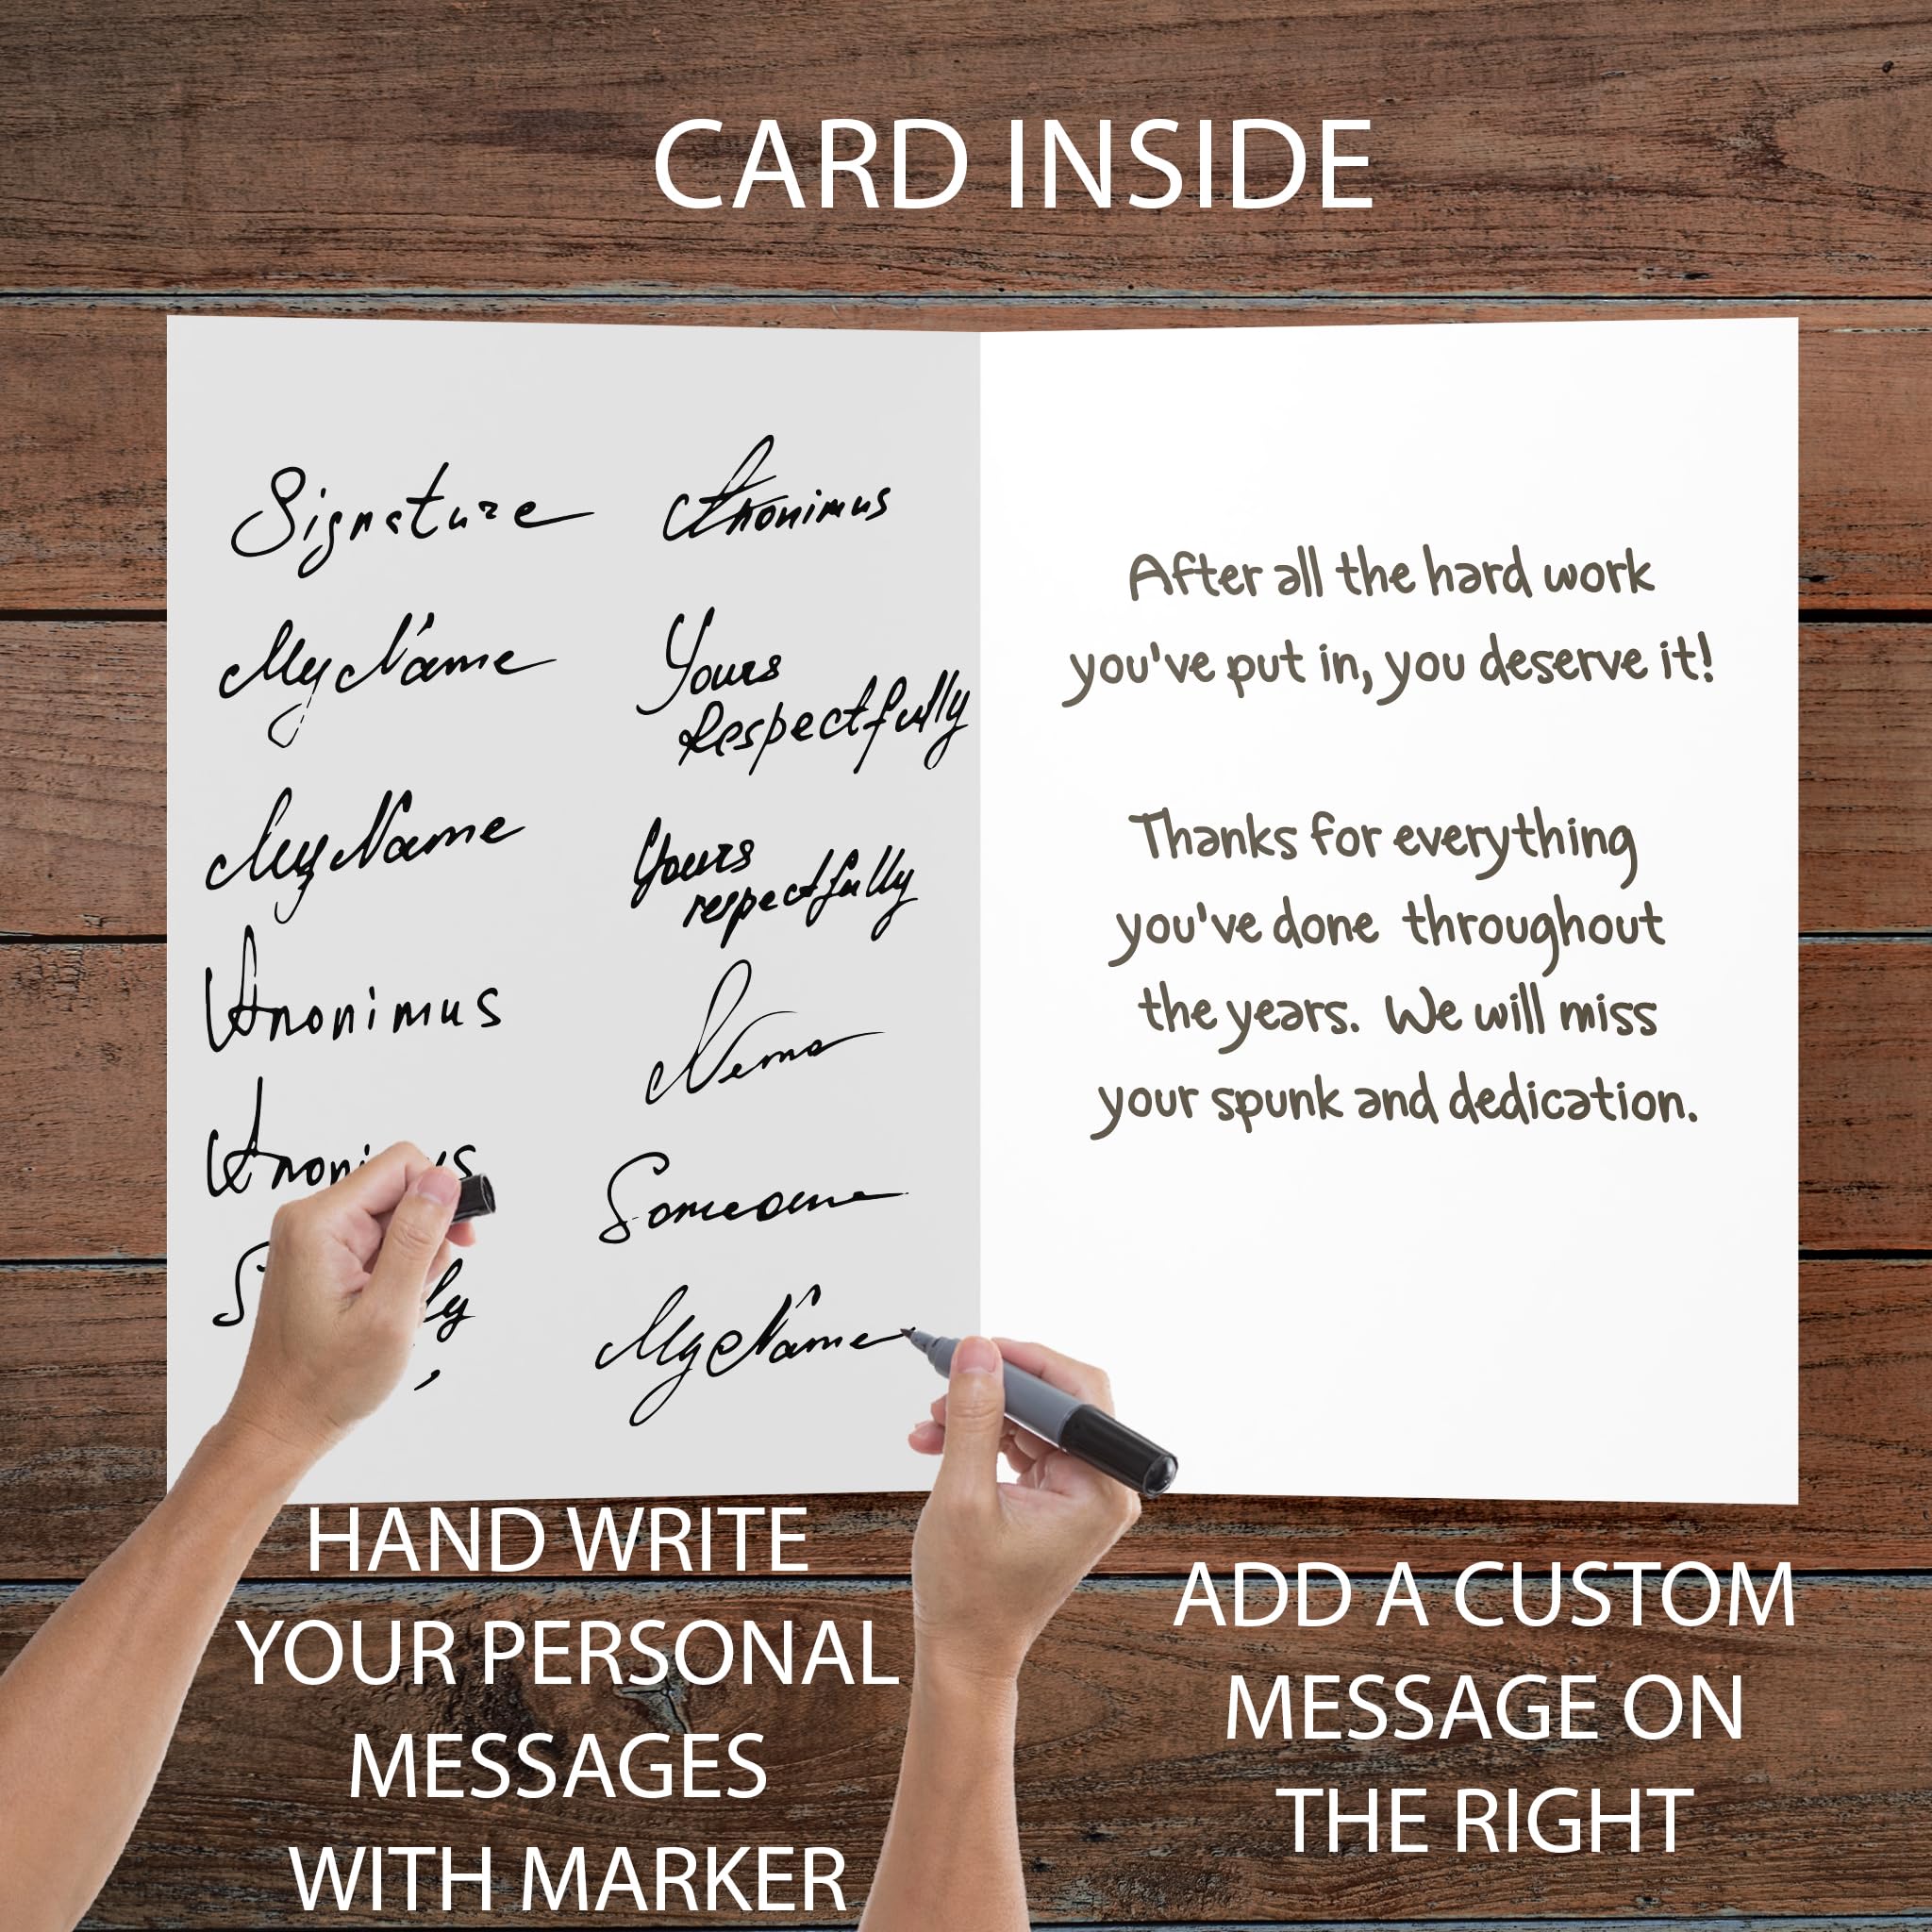 CARD INSIDE
Signature
MyName
MyName
Anonimus
Anonimus
Yours
Respectfully
Yours
respectfully
Nemo
Someone
MyName
After all the hard work
you've put in, you deserve it!
Thanks for everything
you've done throughout
the years. We will miss
your spunk and dedication.
HAND WRITE
YOUR PERSONAL
MESSAGES
WITH MARKER
ADD A CUSTOM
MESSAGE ON
THE RIGHT